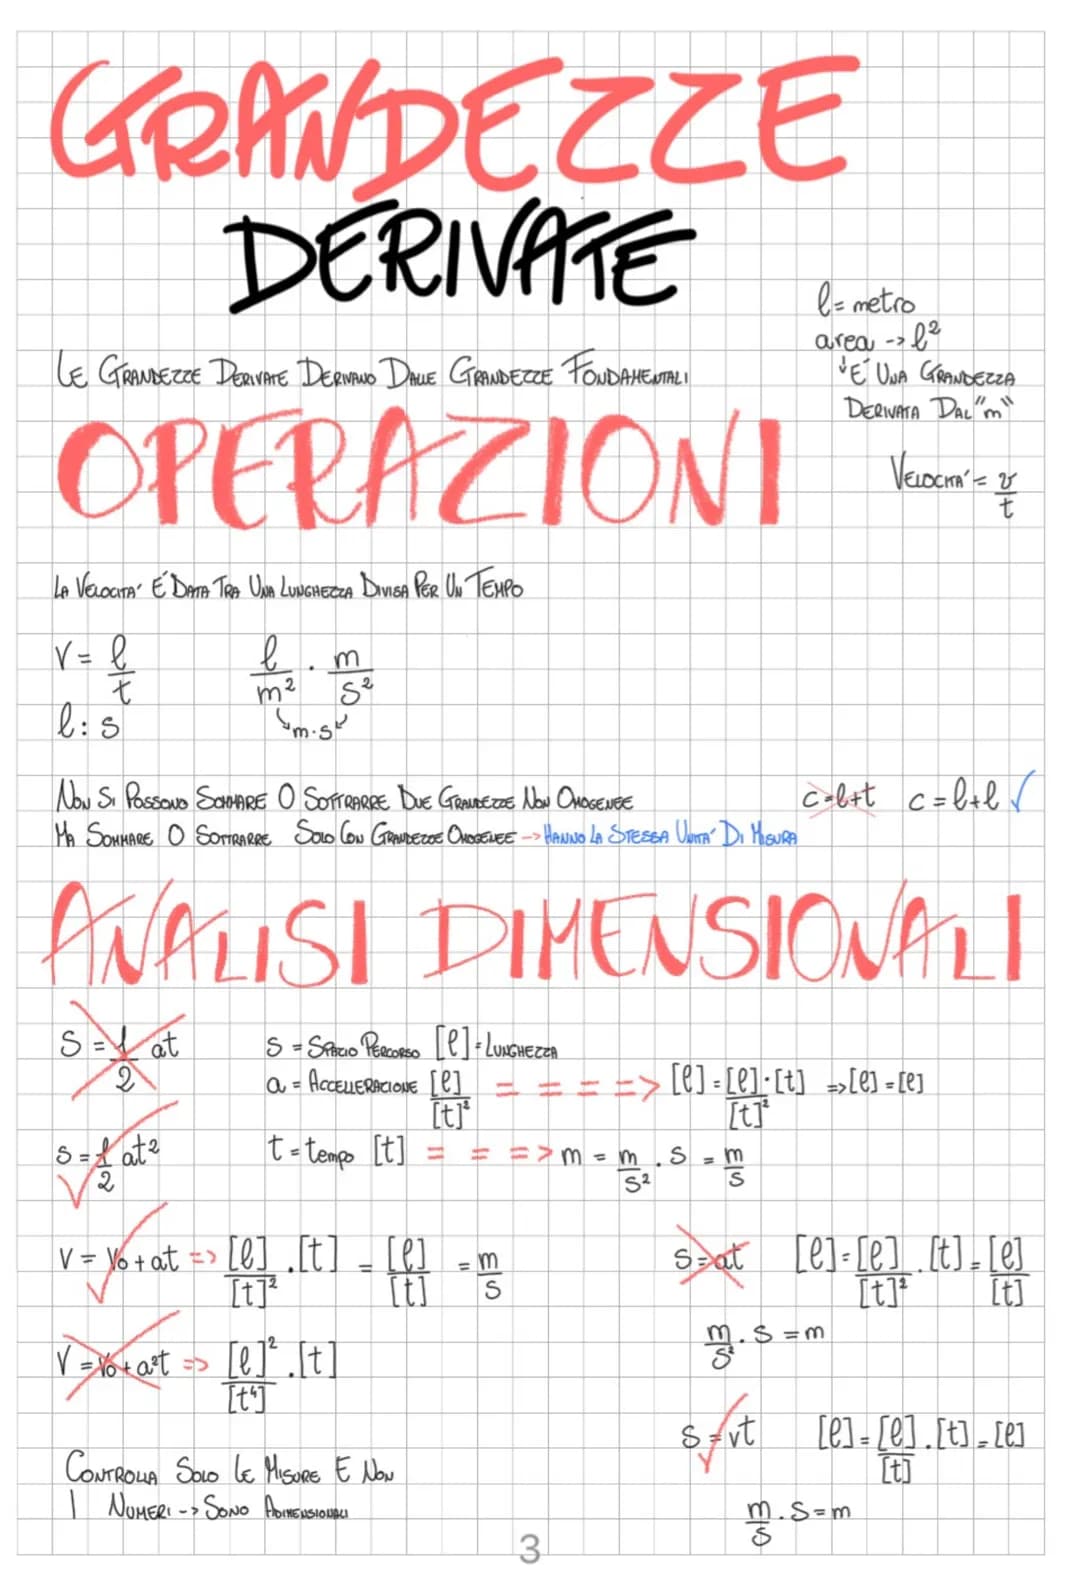 GRANDEZZE
DERIVATE
l = metro
area -> l²
↓ É UNA GRANDEZZA
DERIVATA DAL "m"
LE GRANDEZZE DERIVATE DERIVANO DALLE GRANDEZZE FONDAMENTALI
OPERAZIONI
VELOCITA' = v/t
LA VELOCITA' É DATA TRA UNA LUNGHEZZA DIVISA PER UN TEMPO
V = l/t    l/m² · m/s²
l : s    m·s
NON SI POSSONO SOMMARE O SOTTRARRE DUE GRANDEZZE NON OMOGENEE    c=l+t    c=l+l ✓
MA SOMMARE O SOTTRARRE SOLO CON GRANDEZZE OMOGENEE -> HANNO LA STESSA UNITA' DI MISURA
ANALISI DIMENSIONALI
S = 1/2 at    S = SPAZIO PERCORSO [l] = LUNGHEZZA
a = ACCELLERAZIONE [l]/[t]² = = = => [l] = [l]/[t]² · [t] => [l] = [l]
S = 1/2 at² ✓    t = tempo [t] = = => m = m/s² · s = m/s
V = V₀ + at ✓ => [l]/[t]² · [t] = [l]/[t] = m/s
S = at    [l] = [l]/[t]² · [t] = [l]/[t]
m/s² · s = m
V = V₀ + a²t => [l]²/[t⁴] · [t]
S = vt ✓    [l] = [l]/[t] · [t] = [l]
m/s · s = m
CONTROLLA SOLO LE MISURE E NON
I NUMERI -> SONO ADIMENSIONALI
3